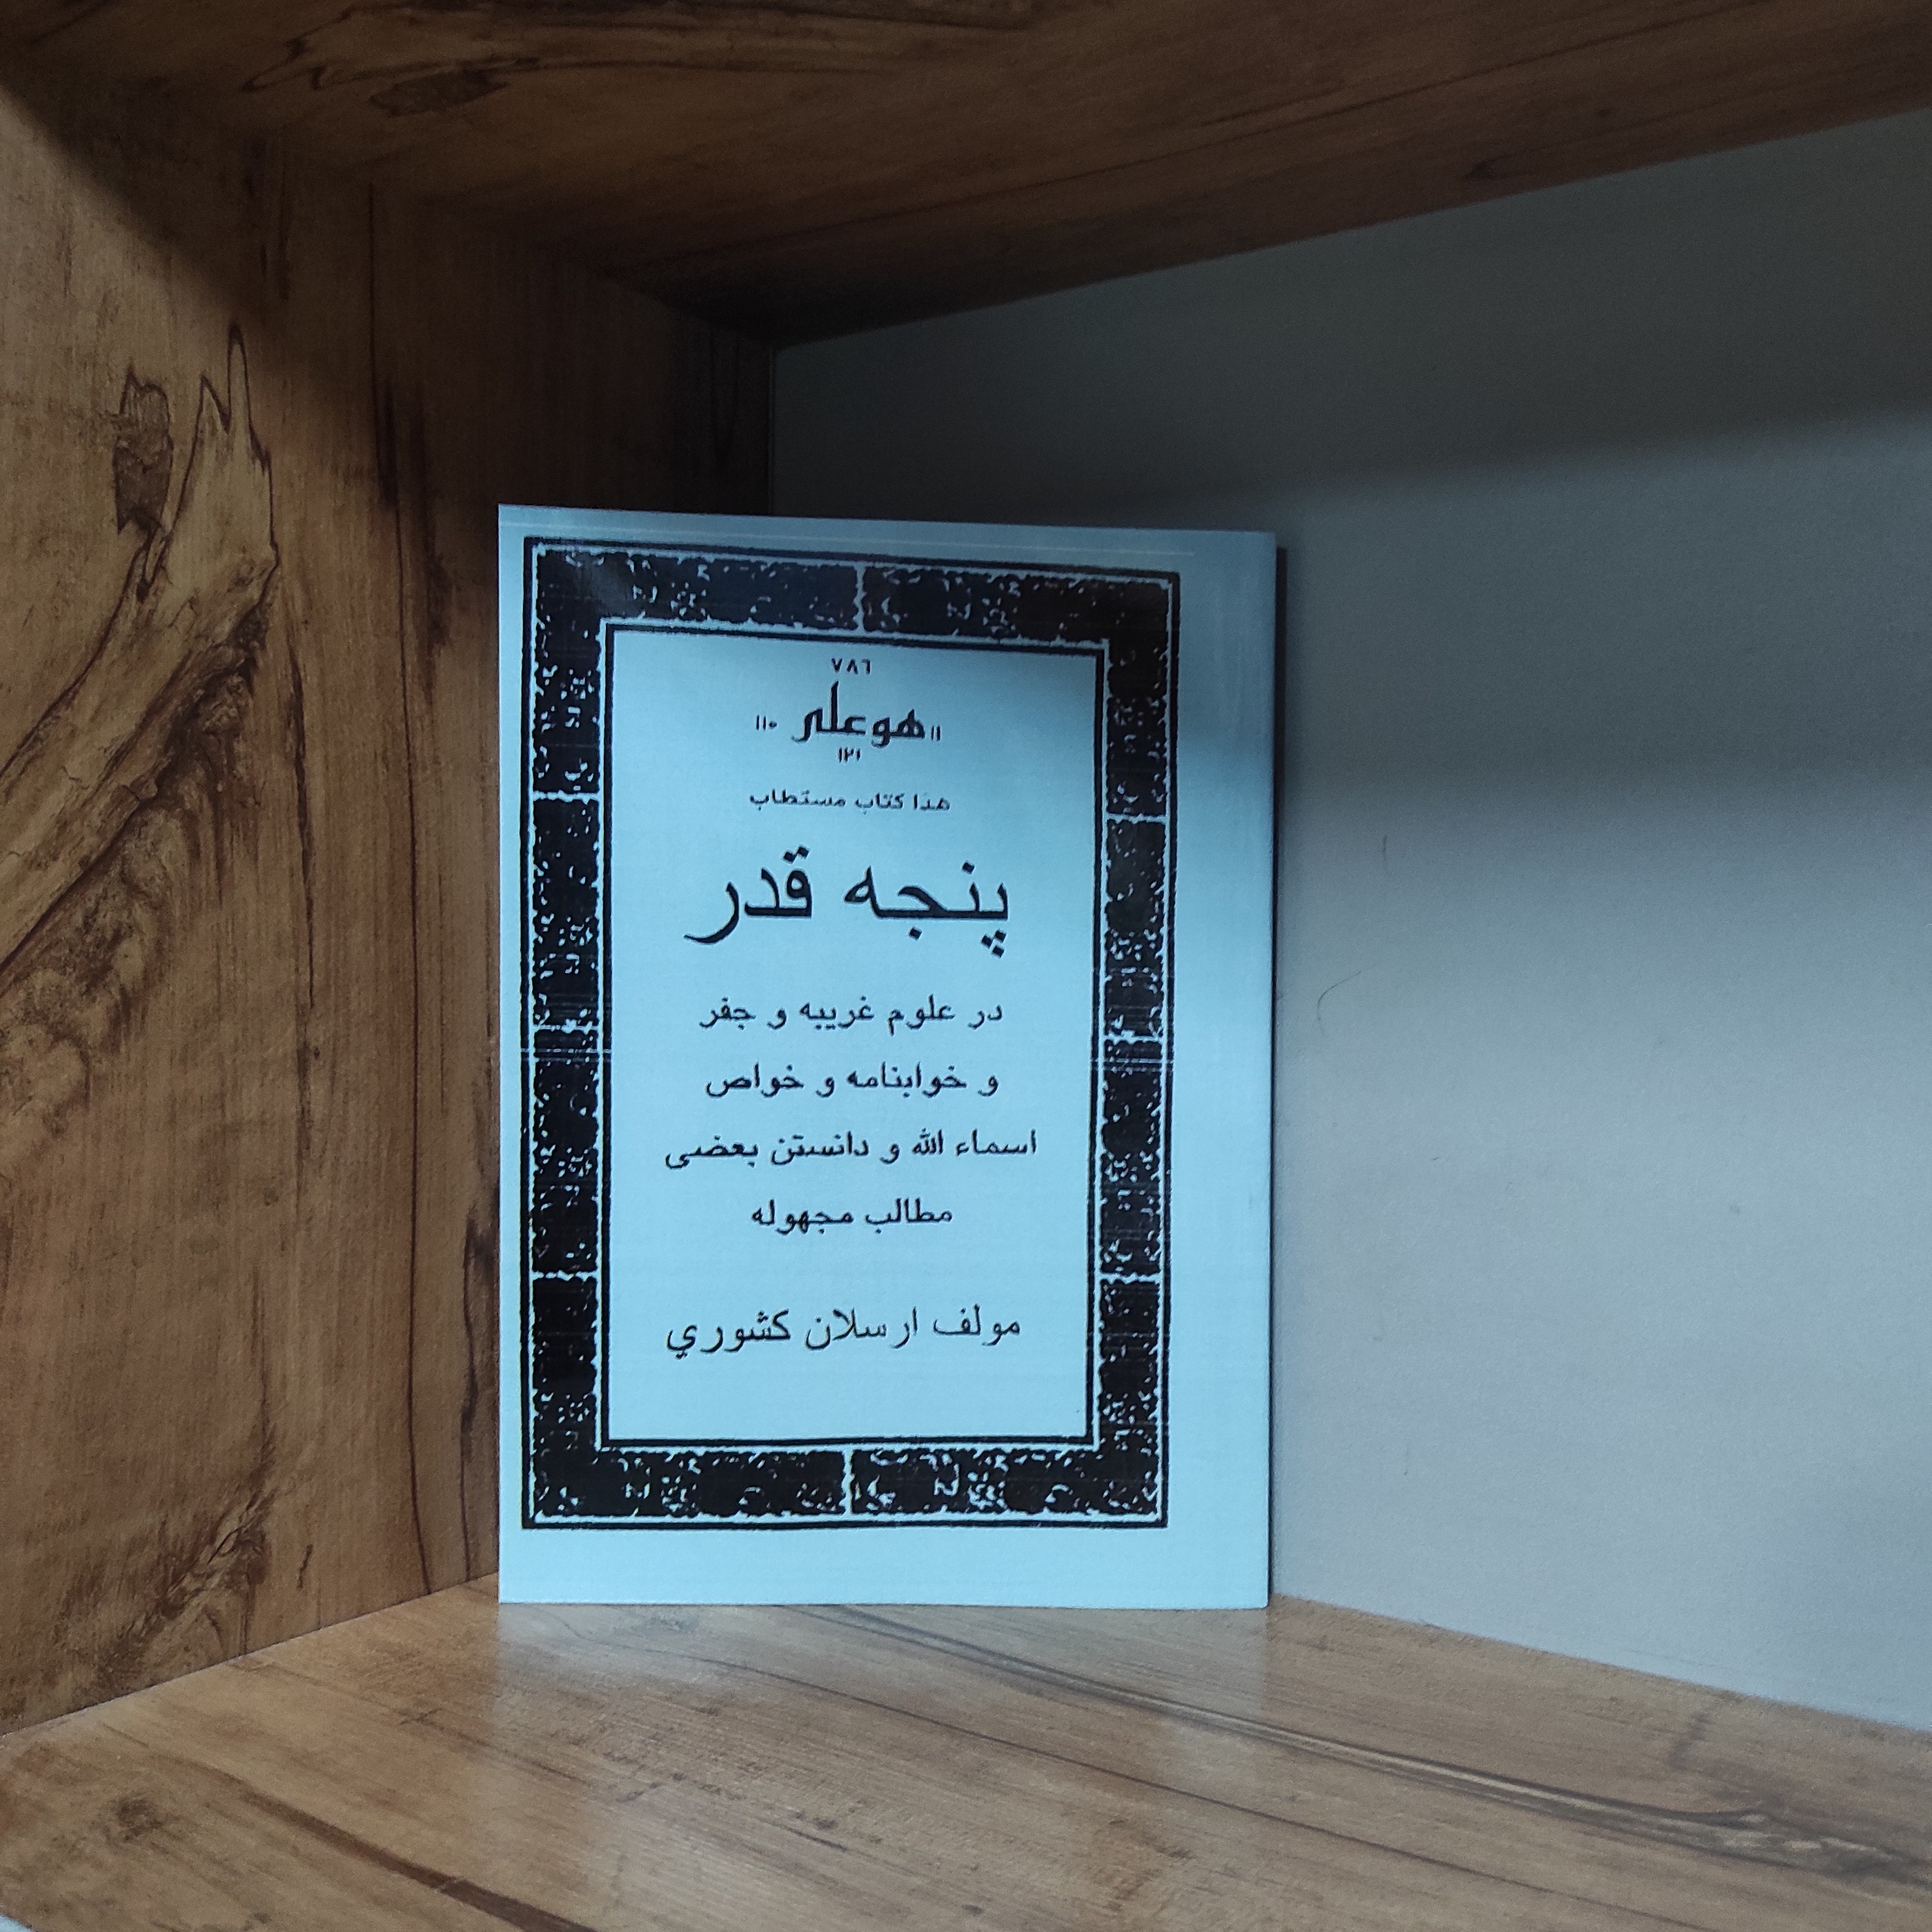 ٧٨٦
١١ هو علی ١١٠
١٢١
هذا کتاب مستطاب
پنجه قدر
در علوم غریبه و جفر
و خوابنامه و خواص
اسماء الله و دانستن بعضی
مطالب مجهوله
مولف ارسلان کشوري